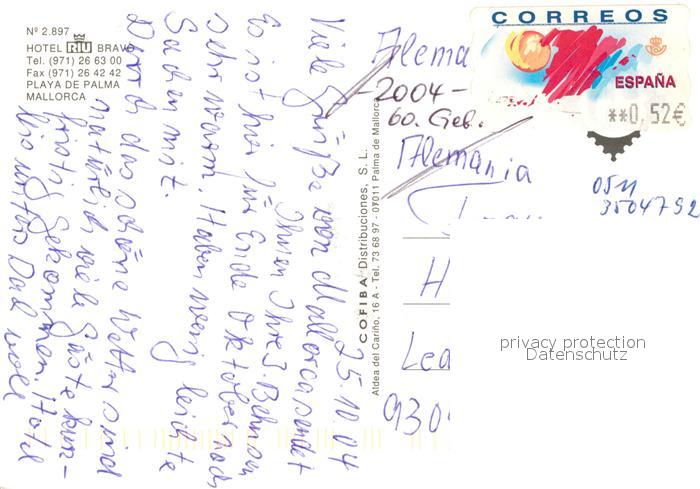 Nº 2.897
HOTEL RIU BRAVO
Tel. (971) 26 63 00
Fax (971) 26 42 42
PLAYA DE PALMA
MALLORCA
25.10.04
Viele Grüße von Mallorca sendet
Ihnen Ihre J. Behnsen
Es ist hier für Ende Oktober noch
sehr warm. Haben wenig leichte
Sachen mit.
Durch das schöne Wetter sind
natürlich viele Gäste kurz-
fristig gekommen. Hotel
bis unters Dach voll
COFIBA Distribuciones, S. L.
Aldea del Cariño, 16 A - Tel. 73 68 97 - 07011 Palma de Mallorca
CORREOS
ESPAÑA
**0,52€
Alema
-2004-
60. Geb.
Alemania
0511
3504792
H
Lea
930
privacy protection
Datenschutz